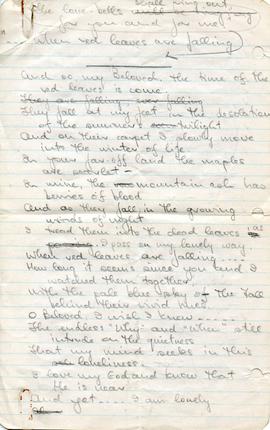 shall ring out
The love-bells
for you and for me
When red leaves are falling
And so, my Beloved, the time of the
red leaves is come.
They are falling, ever falling
They fall at my feet in the desolation
of the summer's twilight
And on their carpet I slowly move
into the winter of life
In your far-off land the maples
are scarlet -
In mine, the mountain ash has
berries of blood.
And as they fall in the growing
winds of night
I tread them into the dead leaves as
I pass on my lonely way.
When red leaves are falling....
How long it seems since you and I
watched them together.
With the pale blue sky of the Fall
behind their vivid hues.
O Beloved I wish I knew.......
The endless "Why" and "When" still
intrude on the quietness
That my mind seeks in this
loneliness.
I love my God and know that
He is near
And yet.... I am lonely